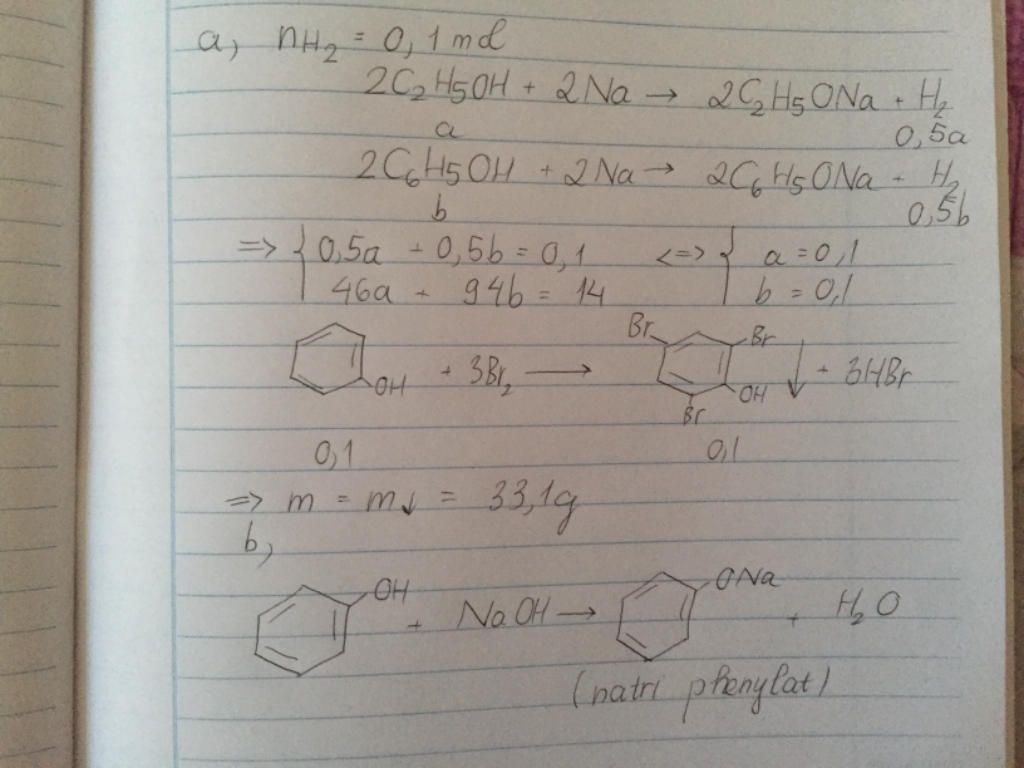 a, nH₂ = 0,1 mol
2C₂H5OH + 2Na → 2C₂H5ONa + H₂
a 0,5a
2C₆H5OH + 2Na → 2C₆H5ONa + H₂
b 0,5b
=> { 0,5a + 0,5b = 0,1 <=> { a = 0,1
46a + 94b = 14 b = 0,1
Br Br
OH + 3Br₂ → OH ↓ + 3HBr
Br
0,1 0,1
=> m = m↓ = 33,1g
b,
OH + NaOH → ONa + H₂O
(natri phenylat)